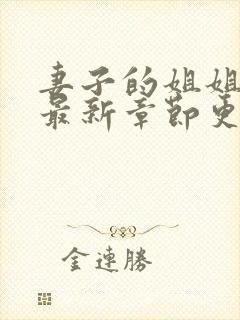 妻子的姐姐
最新章節更
金連勝